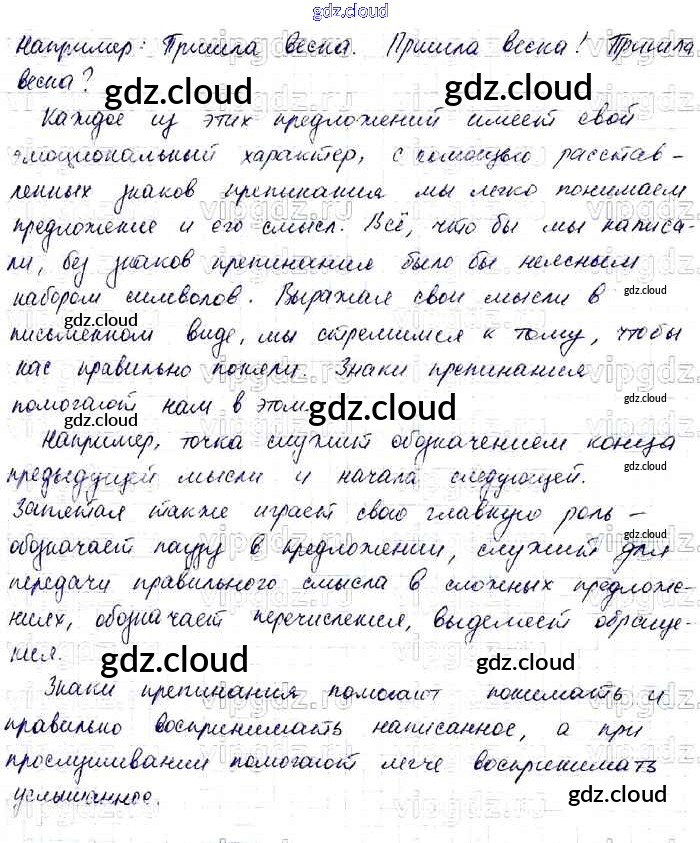 gdz.cloud
Например: Пришла весна. Пришла весна! Пришла
весна?
gdz.cloud gdz.cloud
Каждое из этих предложений имеет свой
эмоциональный характер, с помощью расстав-
ленных знаков препинания мы легко понимаем
предложение и его смысл. Всё, что бы мы написа-
ли, без знаков препинания было бы неясным
набором символов. Выражая свои мысли в gdz.cloud
gdz.cloud
письменном виде, мы стремимся к тому, чтобы
нас правильно поняли. Знаки препинания
помогают нам в этом. gdz.cloud gdz.cloud
Например, точка служит обозначением конца
предыдущей мысли и начала следующей. gdz.cloud
Запятая также играет свою главную роль –
обозначает паузу в предложении, служит для gdz.cloud
передачи правильного смысла в сложных предложе-
ниях, обозначает перечисления, выделяет обраще-
ния.
gdz.cloud gdz.cloud
Знаки препинания помогают понимать и
правильно воспринимать написанное, а при
прослушивании помогают легче воспринимать
услышанное.
gdz.cloud